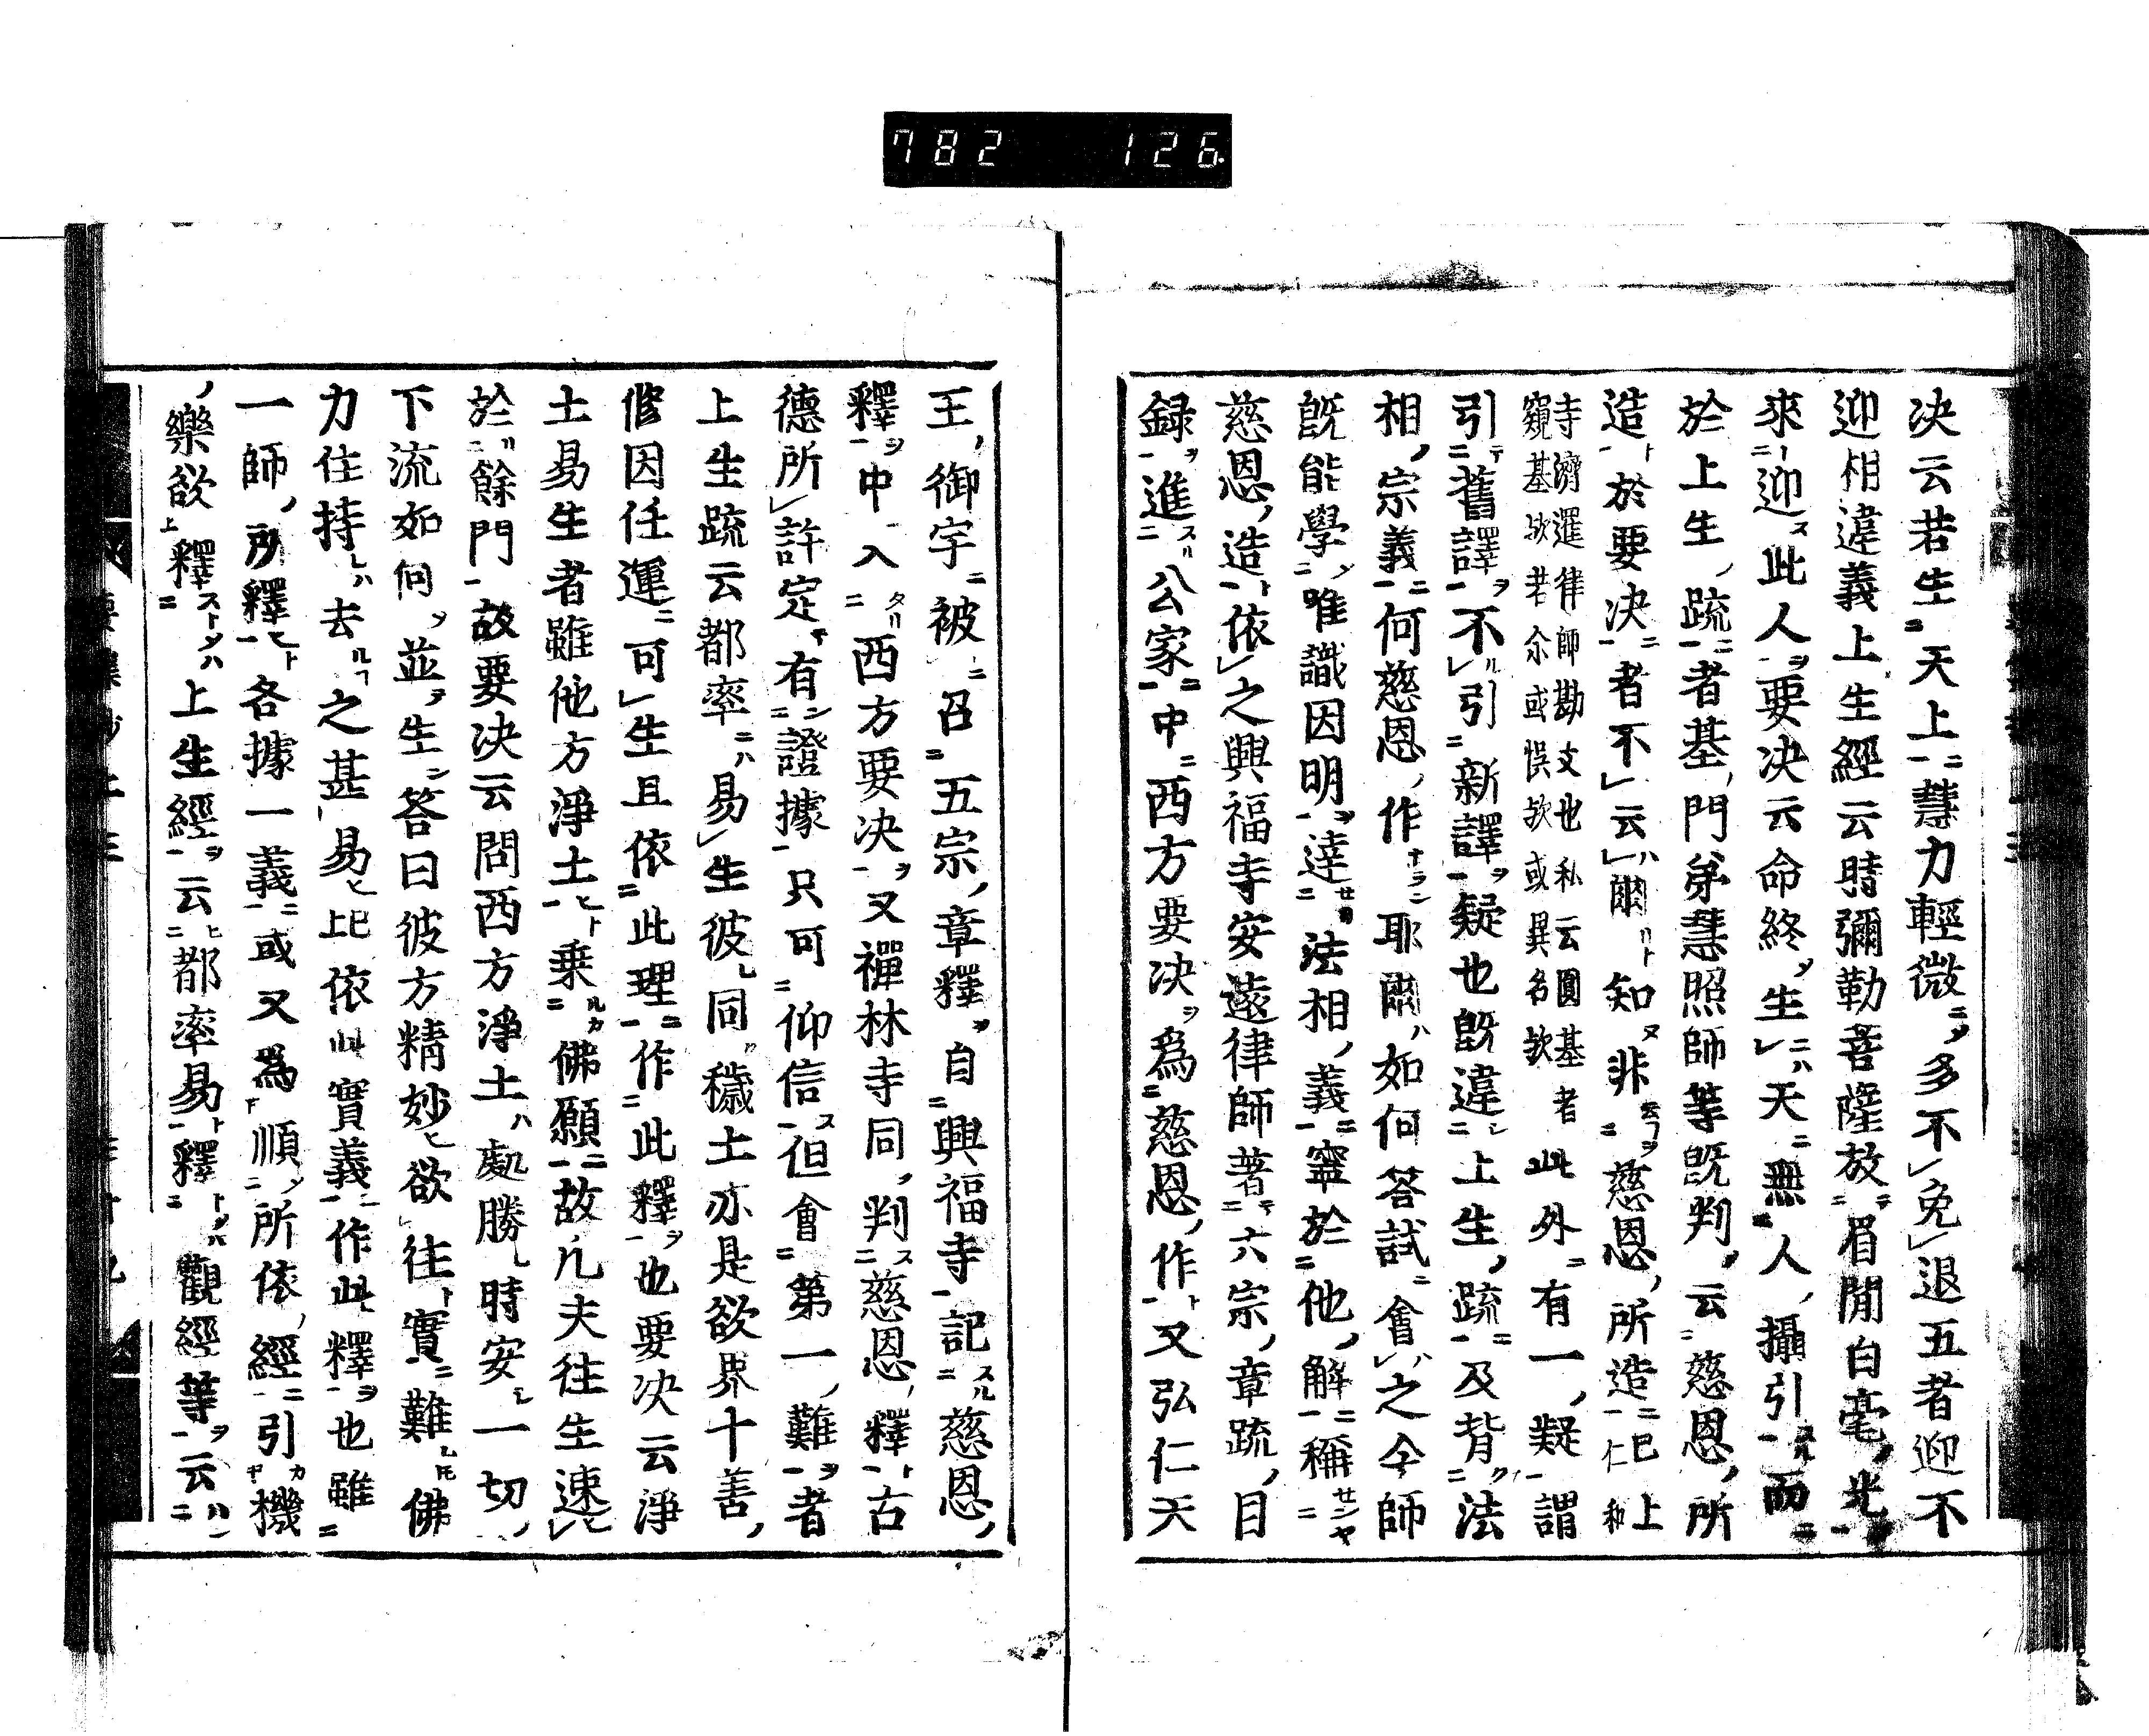 782 126
决云若生天上慧力輕微多不免退五者迎不
迎相違義上生經云時彌勒菩薩放眉間白毫光
來迎此人要决云命終生天無人攝引而
於上生疏者基門弟慧照師等既判云慈恩所
造於要决者不云爾知非慈恩所造已上仁和
寺濟暹律師勘文也私云圓基者
窺基欤若尒或悞欤或異名欤
此外有一疑謂
引舊譯不引新譯疑也既違上生疏及背法
相宗義何慈恩作耶爾如何答試會之今師
既能學唯識因明達法相義寧於他解稱
慈恩造依之興福寺安遠律師著六宗章疏目
録進公家中西方要决爲慈恩作又弘仁天
王御宇被召五宗章釋自興福寺記慈恩
釋中入西方要决又禪林寺同判慈恩釋古
德所許定有證據只可仰信但會第一難者
上生疏云都率易生彼同穢土亦是欲界十善
修因任運可生且依此理作此釋也要决云淨
土易生者雖他方淨土乗佛願故凡夫往生速
於餘門故要决云問西方淨土處勝時安一切
下流如何並生答曰彼方精妙欲往實難佛
力住持去之甚易已上依此實義作此釋也雖
一師所釋各據一義或又爲順所依經引機
樂欲釋上生經云都率易釋觀經等云